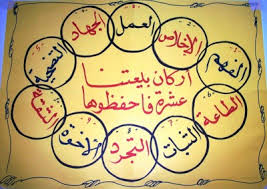 الفهم
الإخلاص
العمل
الجهاد
التضحية
أركان بيعتنا
عشرة فاحفظوها
الطاعة
الثبات
التجرد